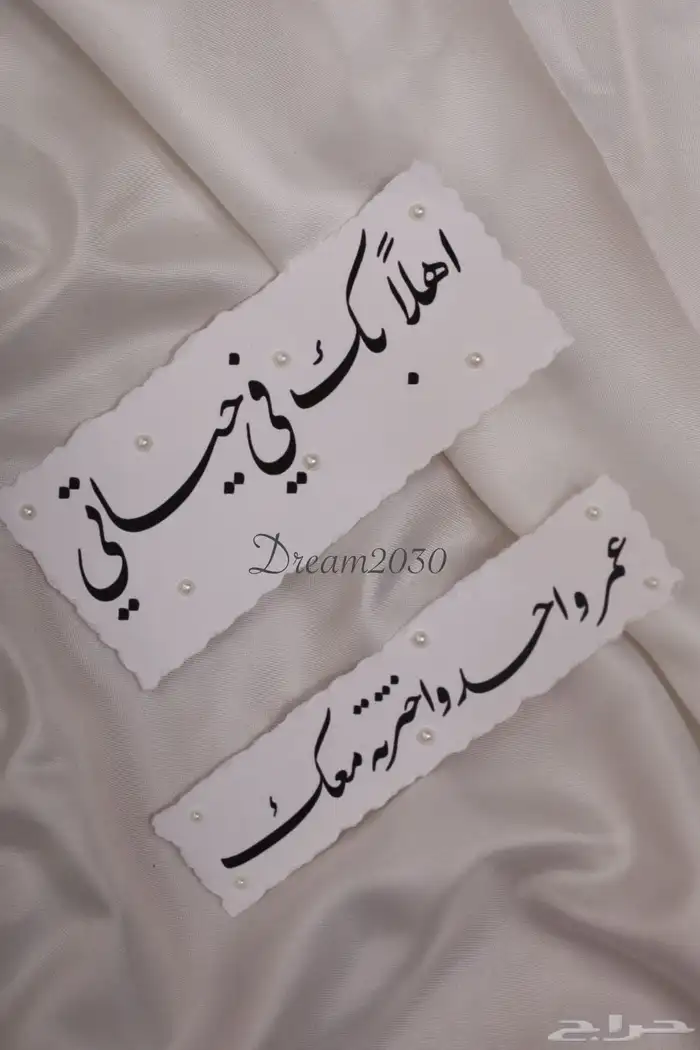 اهلاً بك في حياتي
Dream2030
عمر واحد واخترته معك
حراج